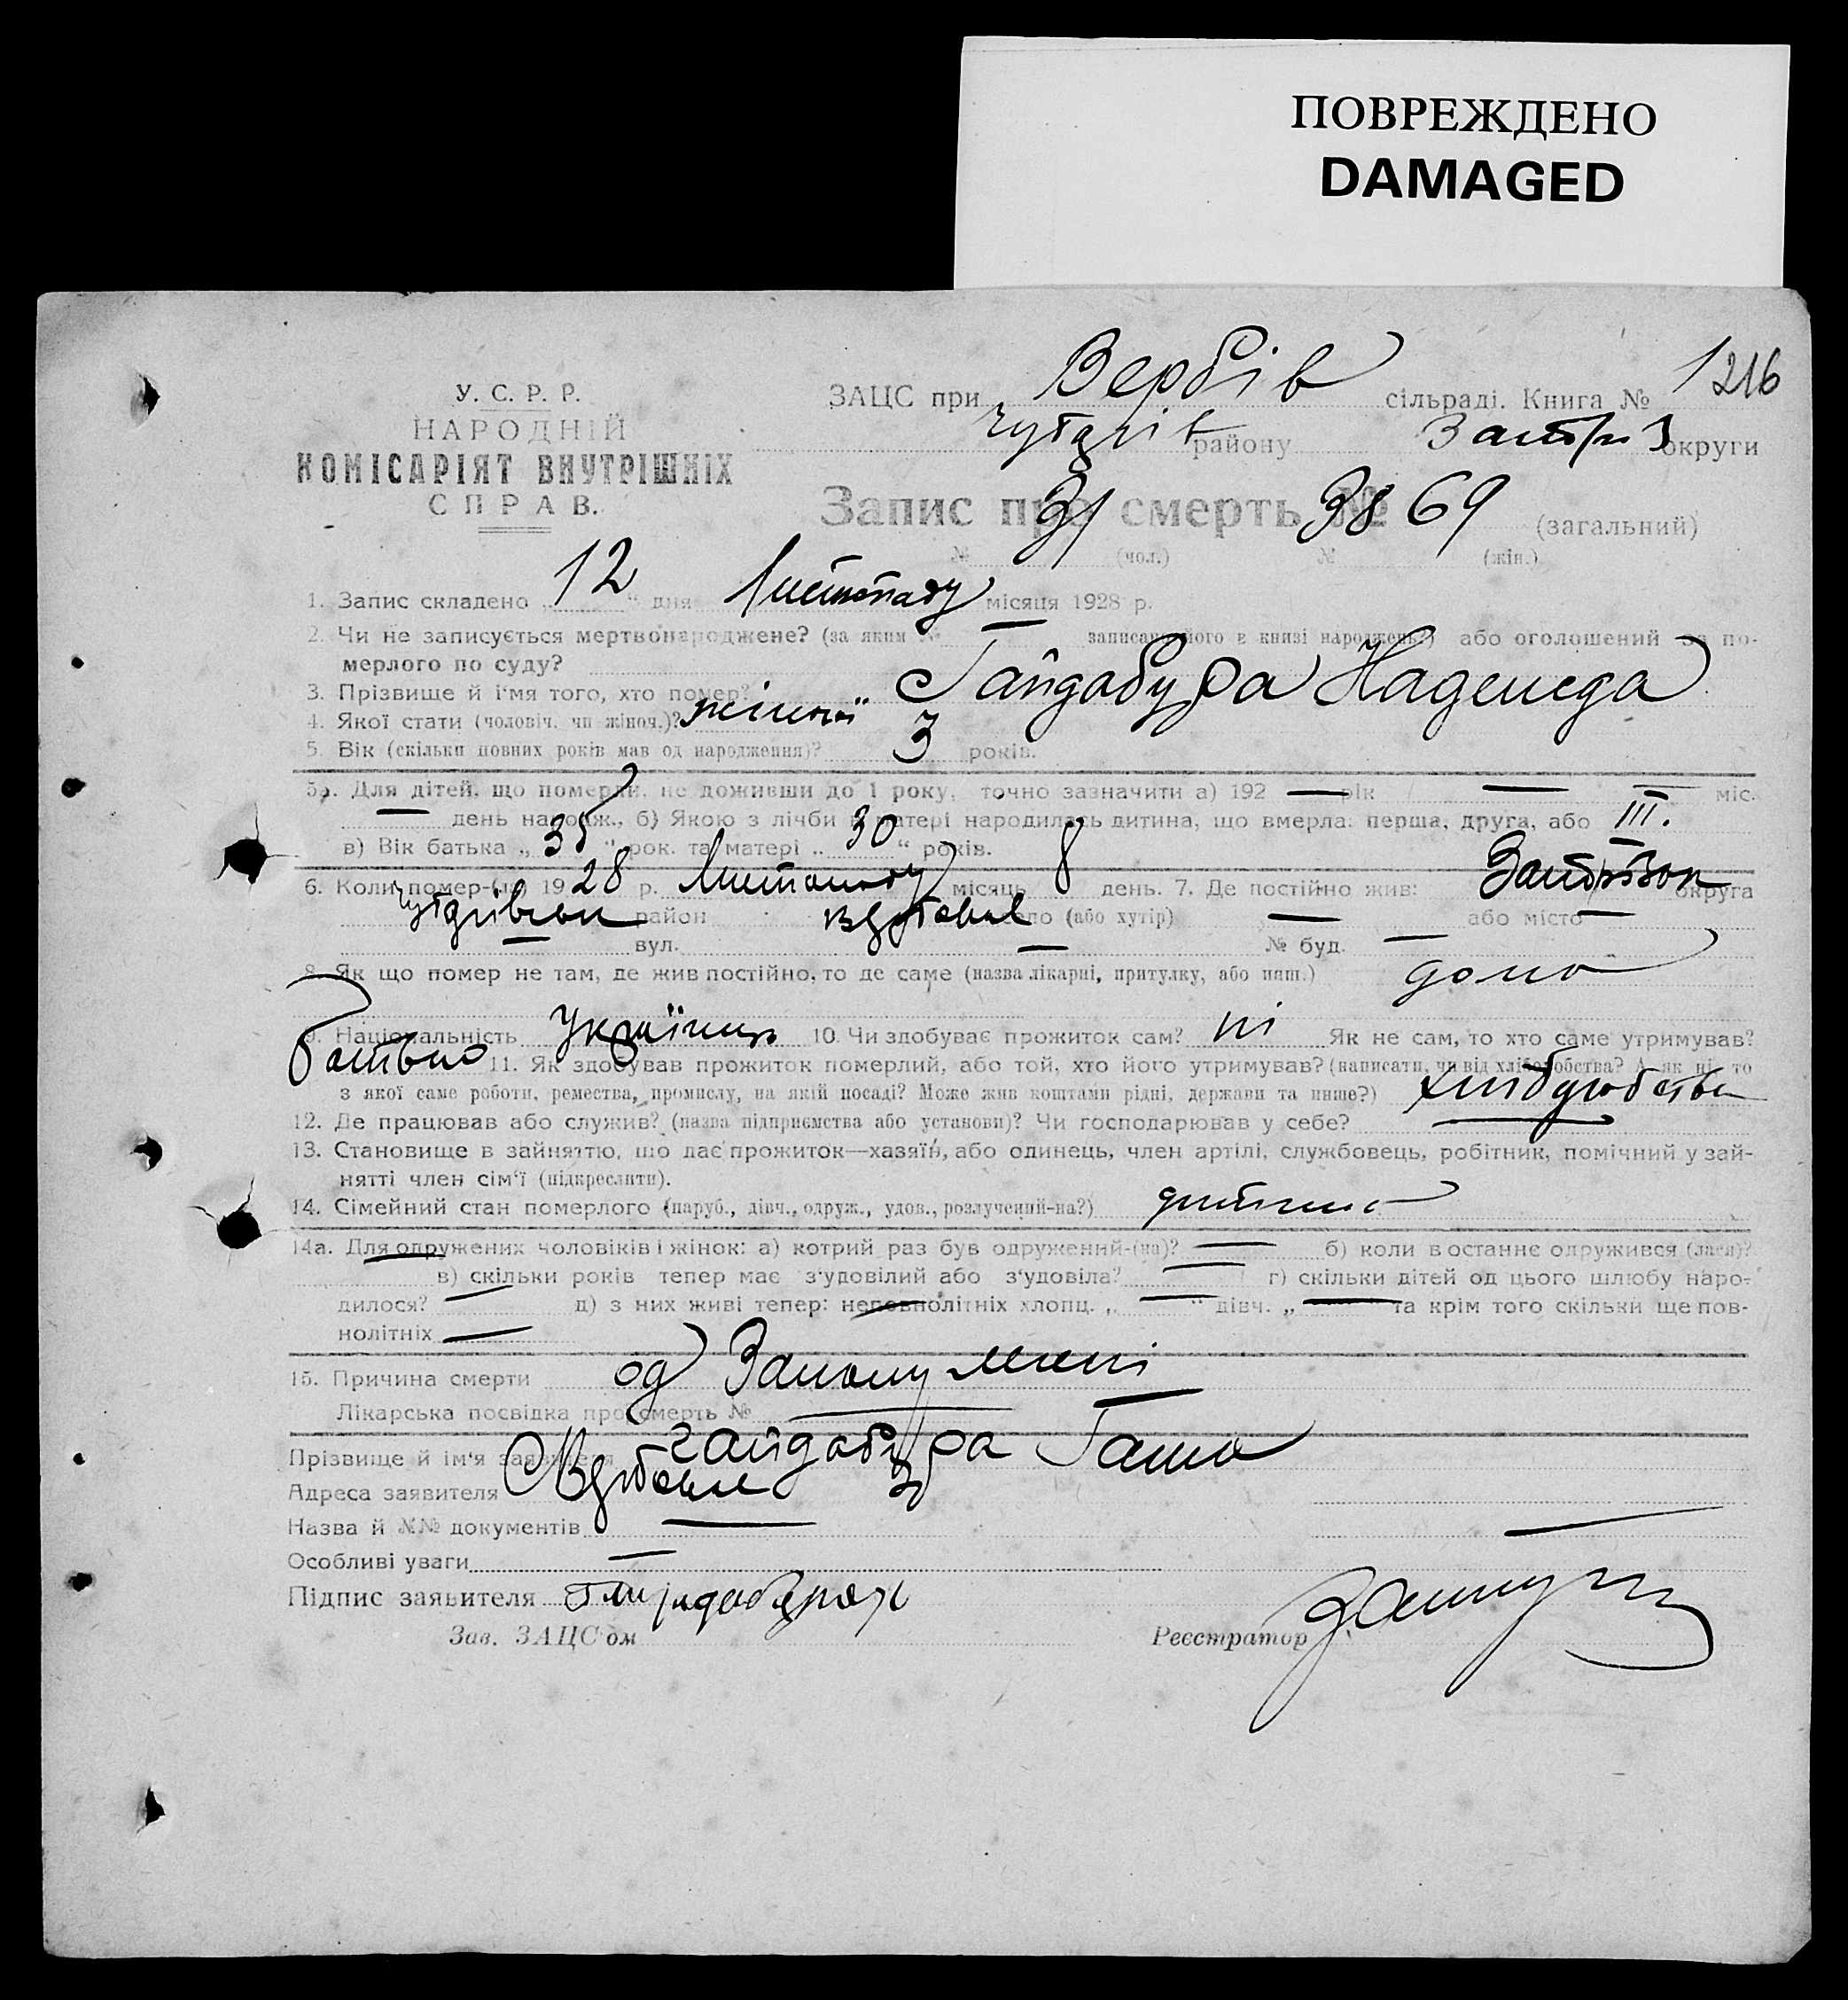 ПОВРЕЖДЕНО
DAMAGED
У. С. Р. Р.
НАРОДНІЙ
КОМІСАРІЯТ ВНУТРІШНІХ
СПРАВ.
ЗАЦС при Вербів сільраді. Книга № 1216
району округи
Запис про смерть № 38 69 (загальний)
31
№ (чол.) № (жін.)
1. Запис складено „12“ дня Листопаду місяця 1928 р.
2. Чи не записується мертвонароджене? (за яким № — записано його в книзі народжень?) або оголошений за по-
мерлого по суду?
3. Прізвище й і'мя того, хто помер? Гайдабура Надежда
4. Якої стати (чоловіч. чи жіноч.)? жіночої
5. Вік (скільки повних років мав од народження)? 3 років.
5а. Для дітей, що померли, не доживши до 1 року, точно зазначити а) 192 — рік — — міс.
— день народж., б) Якою з лічби у матері народилась дитина, що вмерла: перша, друга, або III.
в) Вік батька „35“ рок. та матері „30“ років.
6. Коли помер-(ла) 1928 р. Листопаду місяць 8 день. 7. Де постійно жив: округа
район село (або хутір) — або місто —
— вул. — № буд. —
8. Як що помер не там, де жив постійно, то де саме (назва лікарні, притулку, або инш.) дома
9. Національність Українка 10. Чи здобуває прожиток сам? ні Як не сам, то хто саме утримував?
батько 11. Як здобував прожиток померлий, або той, хто його утримував? (написати, чи від хліборобства? А як ні, то
з якої саме роботи, ремества, промислу, на якій посаді? Може жив коштами рідні, держави та инше?)
12. Де працював або служив? (назва підприємства або установи)? Чи господарював у себе? —
13. Становище в зайняттю, що дає прожиток—хазяїн, або одинець, член артілі, службовець, робітник, помічний у зай-
нятті член сім'ї (підкреслити).
14. Сімейний стан померлого (паруб., дівч., одруж., удов., розлучений-на?) дитина
14а. Для одружених чоловіків і жінок: а) котрий раз був одружений-(на)? — б) коли в останнє одружився (лася)?
— в) скільки років тепер має з'удовілий або з'удовіла? — г) скільки дітей од цього шлюбу наро-
дилося? — д) з них живі тепер: неповнолітніх хлопц. „—“ дівч. „— та крім того скільки ще пов-
нолітніх —
15. Причина смерти од
Лікарська посвідка про смерть № —
Прізвище й ім'я заявителя Гайдабура
Адреса заявителя
Назва й №№ документів — —
Особливі уваги —
Підпис заявителя
Зав. ЗАЦС'ом Реєстратор